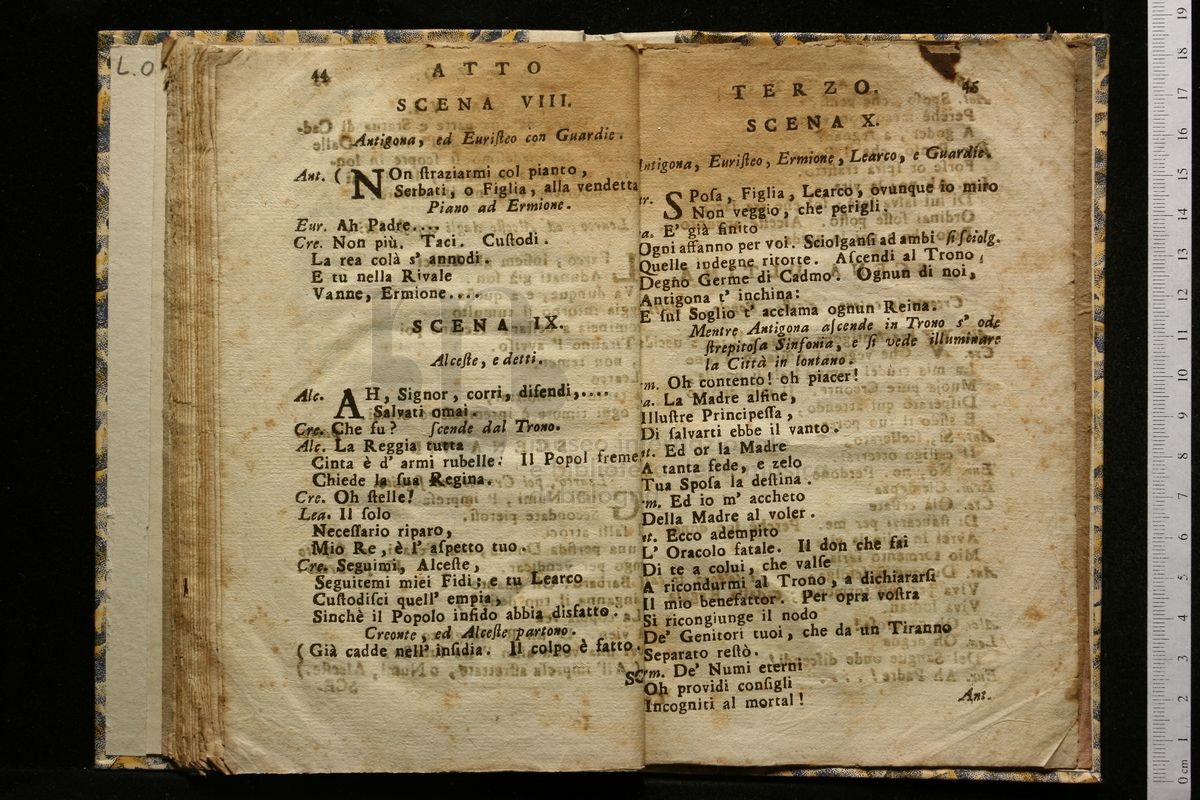 L.O
44
ATTO
SCENA VIII.
Antigona, ed Euriſteo con Guardie.
Ant. ( NOn ſtraziarmi col pianto,
Serbati, o Figlia, alla vendetta
Piano ad Ermione.
Eur. Ah Padre....
Cre. Non più. Taci. Cuſtodi.
La rea colà s' annodi.
E tu nella Rivale
Vanne, Ermione....
SCENA IX.
Alceſte, e detti.
Alc. AH, Signor, corri, difendi,....
Salvati omai.
Cre. Che fu? ſcende dal Trono.
Alc. La Reggia tutta
Cinta è d' armi rubelle: Il Popol freme
Chiede la ſua Regina.
Cre. Oh ſtelle!
Lea. Il ſolo
Neceſſario riparo,
Mio Re, è l' aſpetto tuo.
Cre. Seguimi, Alceſte,
Seguitemi miei Fidi; e tu Learco
Cuſtodiſci quell' empia,
Sinchè il Popolo infido abbia disfatto.
Creonte, ed Alceſte partono.
( Già cadde nell' inſidia. Il colpo è fatto.
SC
TERZO.
45
SCENA X.
Antigona, Euriſteo, Ermione, Learco, e Guardie.
ur. SPoſa, Figlia, Learco, ovunque io miro
Non veggio, che perigli.
a. E' già finito
Ogni affanno per voi. Sciolganſi ad ambi ſi ſciolg.
Quelle indegne ritorte. Aſcendi al Trono,
Degno Germe di Cadmo. Ognun di noi,
Antigona t' inchina:
E ſul Soglio t' acclama ognun Reina.
Mentre Antigona aſcende in Trono s' ode
ſtrepitoſa Sinfonia, e ſi vede illuminare
la Città in lontano.
m. Oh contento! oh piacer!
a. La Madre alfine,
Illuſtre Principeſſa,
Di ſalvarti ebbe il vanto.
nt. Ed or la Madre
A tanta fede, e zelo
Tua Spoſa la deſtina.
m. Ed io m' accheto
Della Madre al voler.
nt. Ecco adempito
L' Oracolo fatale. Il don che fai
Di te a colui, che valſe
A ricondurmi al Trono, a dichiararſi
Il mio benefattor. Per opra voſtra
Si ricongiunge il nodo
De' Genitori tuoi, che da un Tiranno
Separato reſtò.
rm. De' Numi eterni
Oh providi conſigli
Incogniti al mortal!
Ant.
0 cm 1 2 3 4 5 6 7 8 9 10 11 12 13 14 15 16 17 18 19